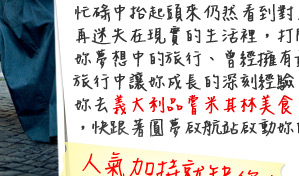 忙碌中抬起頭來仍然看到對
再迷失在現實的生活裡,打開
妳夢想中的旅行、曾經擁有
旅行中讓妳成長的深刻經驗
妳去義大利品嘗米其林美食
,快跟著圓夢啟航站啟動妳的
人氣加持就缺你